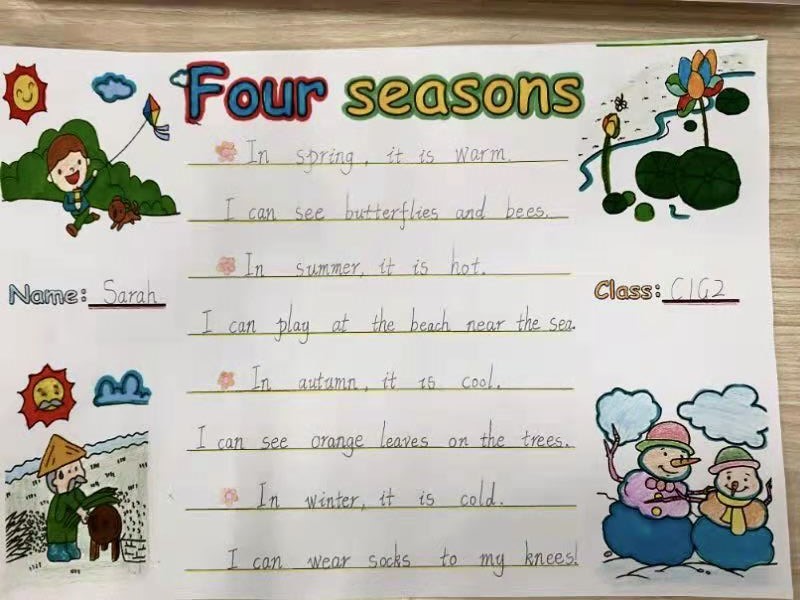 Four seasons
In spring, it is warm.
I can see butterflies and bees.
In summer, it is hot.
Name: Sarah
Class: C1G2
I can play at the beach near the sea.
In autumn, it is cool.
I can see orange leaves on the trees.
In winter, it is cold.
I can wear socks to my knees!